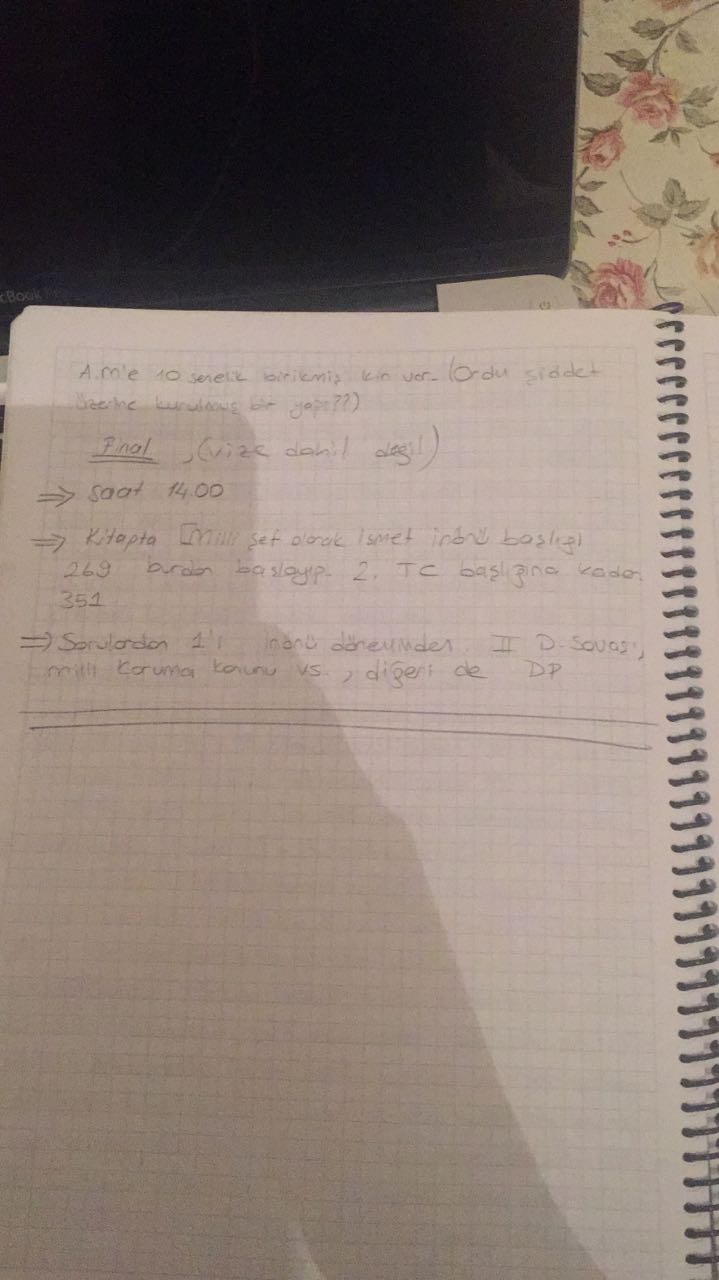 cBook
A.M'e 10 senelik birikmiş kin var. (Ordu şiddet
üzerine kurulmuş bir yapı??)
Final, (vize dahil değil)
⇒ saat 14.00
⇒ Kitapta [Milli şef olarak ismet inönü başlığı
269 burdan başlayıp 2. TC başlığına kadar
351
⇒ Sorulardan 1'i inönü döneminden II D. Savaşı,
milli koruma kanunu vs., diğeri de DP